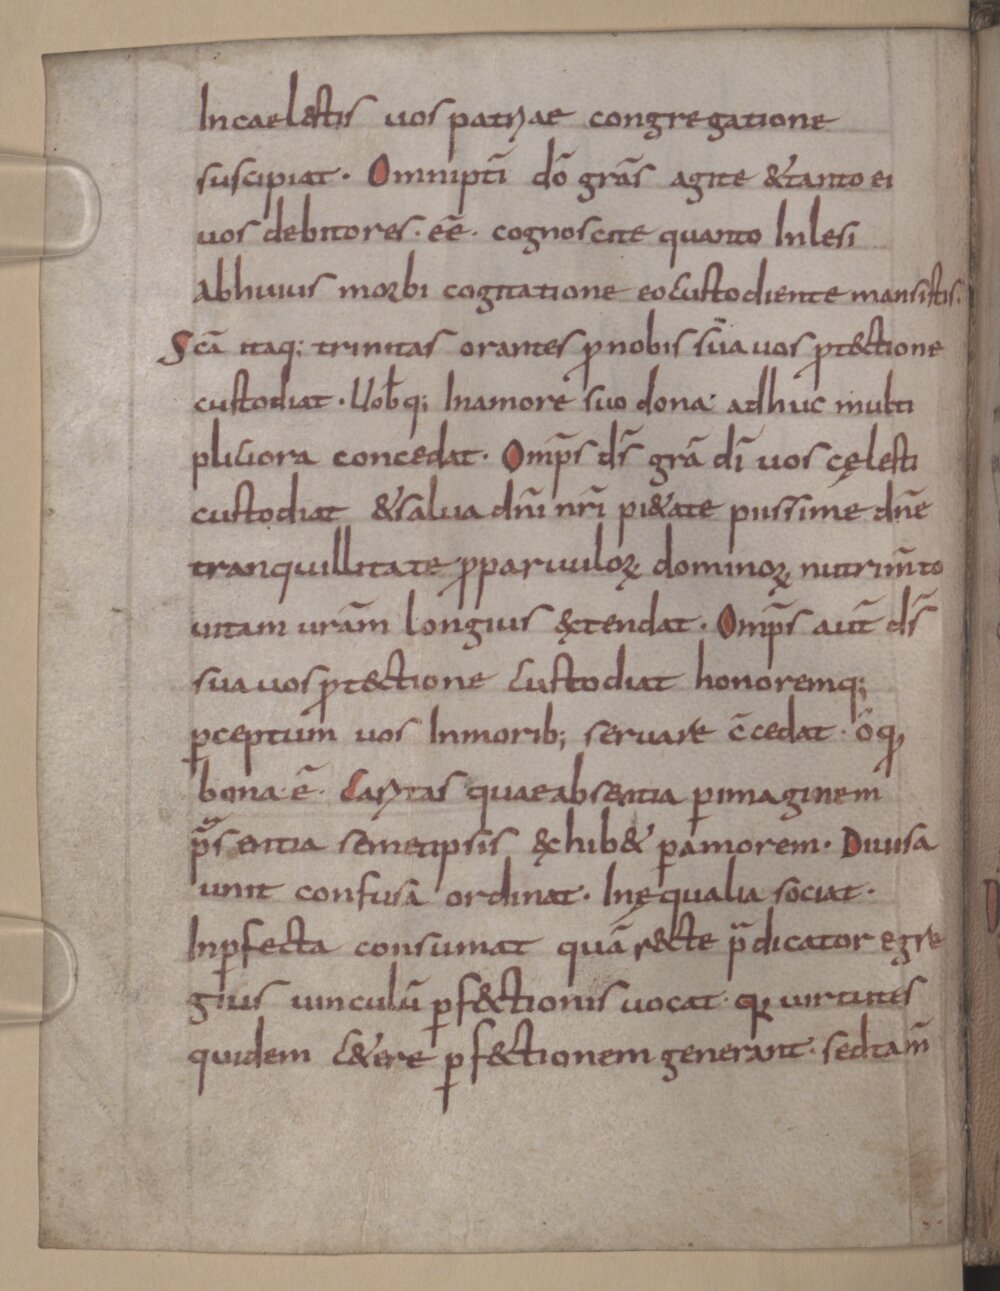 Incaelestis uos patriae congregatione
suscipiat. Omnipti̅ do̅ gra̅s agite &tanto ei
uos debitores. ee̅. cognoscite quanto Inlesi
Abhuius morbi cogitatione eocustodiente mansistis.
Sca̅ itaq; trinitas orantes ꝓnobis sua uos ꝓt&ctione
custodiat. Uob̅q; Inamore suo dona adhuc multi
pliciora concedat. Omp̅s ds̅ gra̅ di̅ uos cęlesti
custodiat &salua dn̅i nr̅i pi&ate piissime dn̅e
tranquillitate ꝓparuuloꝝ dominoꝝ nutrim̅to
uitam ura̅m longius &̨tendat. Omp̅s aut̅ ds̅
sua uos ꝓt&ctione custodiat honoremq;
ꝑceptum uos Inmorib; seruare c̅cedat. o̅ꝗ
bona e̅. Caritas quaeabsentia ꝑimaginem
p̅sentia semetipsis &̨hib& ꝑamorem. Diuisa
unit confusa ordinat. Inęqualia sociat.
Inꝑfecta consumat qua̅ r&cte p̅dicator egre
gius uinculu̅ ꝑf&ctionis uocat. ꝗ uirtutes
quidem c&ere ꝑf&ctionem generant. sedtam̅